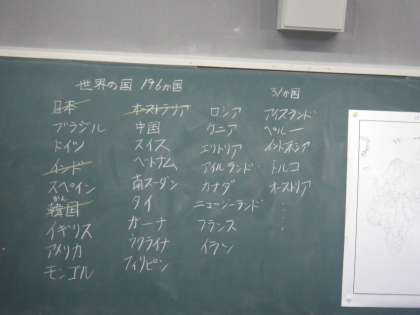 世界の国 196か国
31か国
日本
ブラジル
ドイツ
インド
スペイン
かん
韓国
イギリス
アメリカ
モンゴル
オーストラリア
中国
スイス
ベトナム
南スーダン
タイ
ガーナ
ウクライナ
フィリピン
ロシア
ケニア
エリトリア
アイルランド
カナダ
ニュージーランド
フランス
イラン
アイスランド
ペルー
インドネシア
トルコ
オーストリア